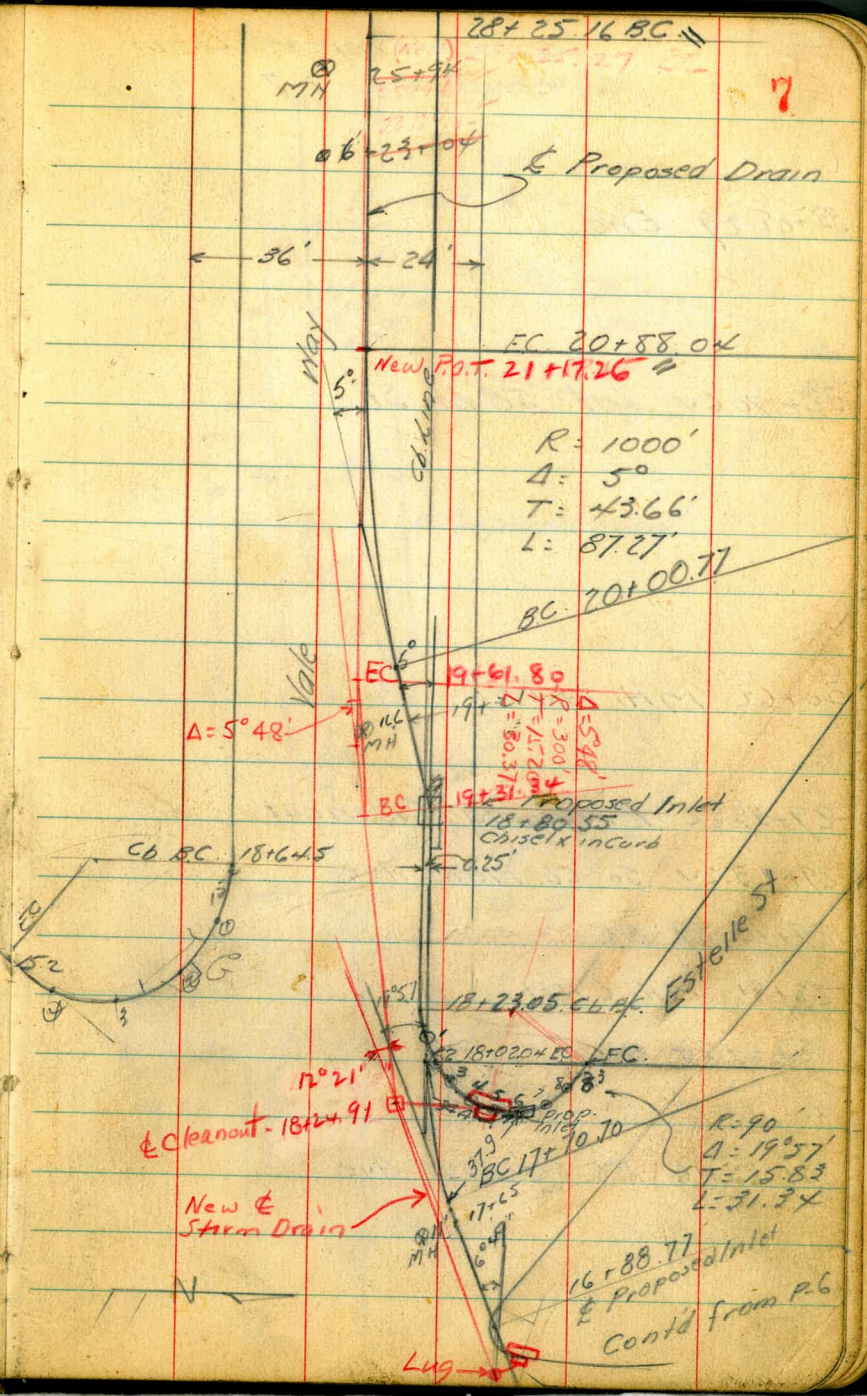 28+25.16 B.C.
7
MH 25+94
6' 23+04
℄ Proposed Drain
36'
24'
E.C. 20+88.04
New P.O.T. 21+17.26
Way
5°
Cb. Line
R= 1000'
Δ= 5°
T= 43.66'
L= 87.27'
BC. 20+00.77
5°
EC
19+61.80
Vale
Δ= 5°48'
MH
Δ=5°48'
R=300'
BC
19+31.34
℄ Proposed Inlet
18+80.55
Chisel x in Curb
Cb. B.C. 18+64.5
0.25'
EC
Estelle St.
3
18+23.05 Cb. P.C.
18+02.04 EC
EC.
12°21'
℄ Cleanout - 18+24.91
Prop. Inlet
37.9
BC 17+70.70
R=90'
Δ= 19°57'
T= 15.83
L=31.34
New ℄
Storm Drain
17+65
MH
6°04'
16+88.77
℄ Proposed Inlet
N
Cont'd from P-6
Lug